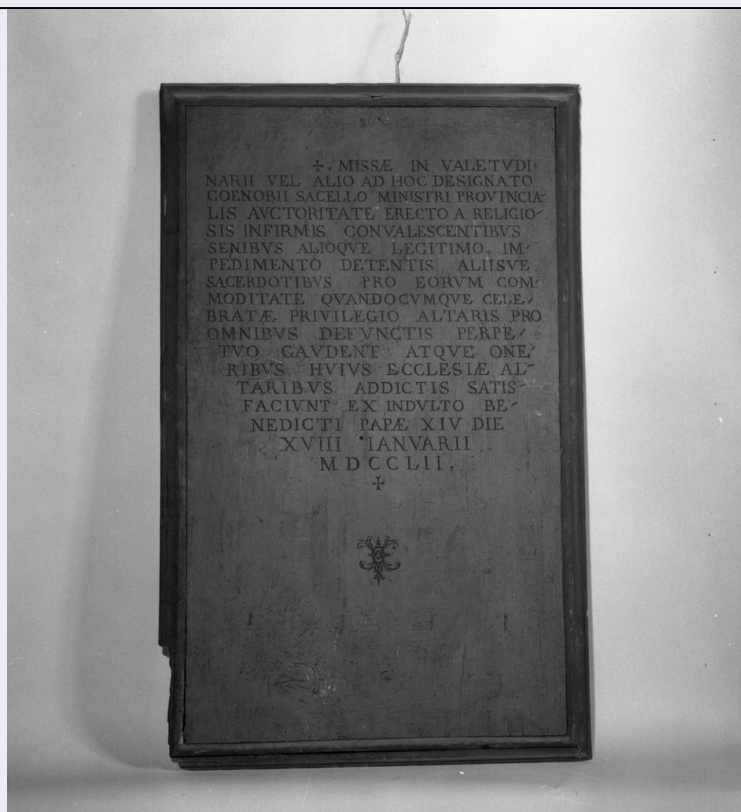 +. MISSÆ IN VALETVDI
NARII VEL ALIO AD HOC DESIGNATO
COENOBII SACELLO MINISTRI PROVINCIA-
LIS AVCTORITATE ERECTO A RELIGIO-
SIS INFIRMIS CONVALESCENTIBVS
SENIBVS ALIOQVE LÆGITIMO IM-
PEDIMENTO DETENTIS ALIISVE
SACERDOTIBVS PRO EORVM COM-
MODITATE QVANDOCVMQVE CELE-
BRATÆ PRIVILEGIO ALTARIS PRO
OMNIBVS DEFVNCTIS PERPE-
TVO GAVDENT ATQVE ONE-
RIBVS HVIVS ECCLESIÆ AL-
TARIBVS ADDICTIS SATIS-
FACIVNT EX INDVLTO BE-
NEDICTI PAPÆ XIV DIE
XVIII IANVARII
MDCCLII.
+